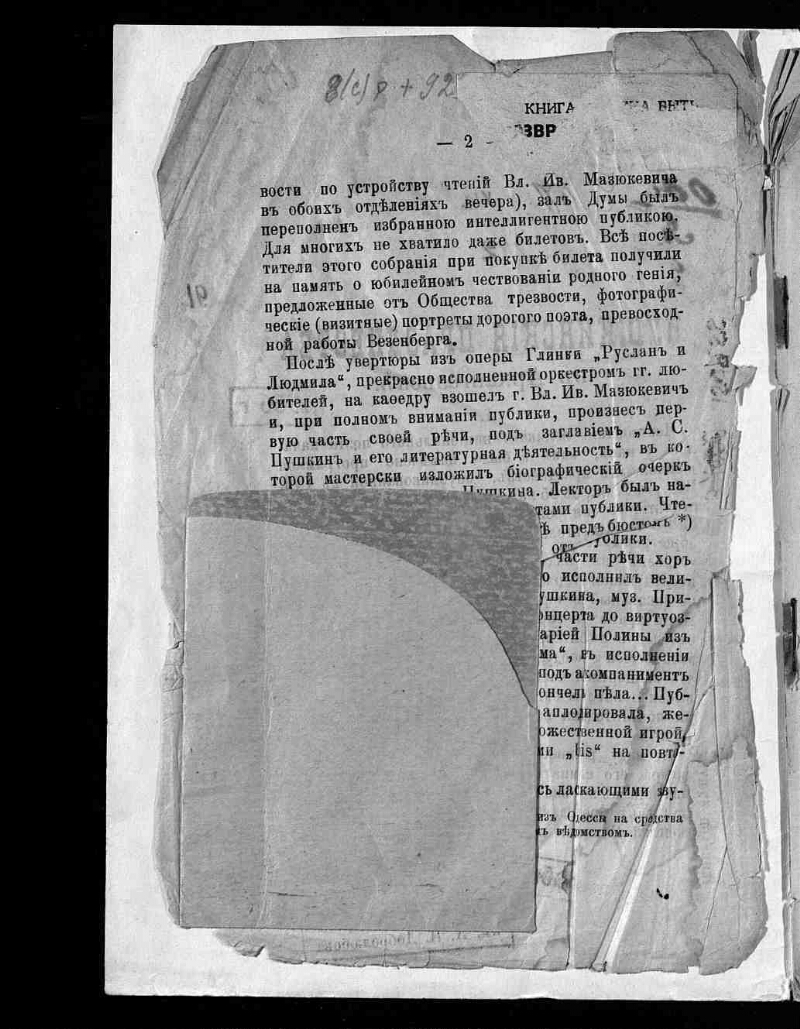 8(с)р + 92
КНИГА
— 2 -
вости по устройству чтеній Вл. Ив. Мазюкевича
въ обоихъ отдѣленіяхъ вечера), залъ Думы былъ
переполненъ избранною интеллигентною публикою.
Для многихъ не хватило даже билетовъ. Всѣ посѣ-
тители этого собранія при покупкѣ билета получили
на память о юбилейномъ чествованіи родного генія,
предложенные отъ Общества трезвости, фотографи-
ческіе (визитные) портреты дорогого поэта, превосход-
ной работы Везенберга.
Послѣ увертюры изъ оперы Глинки „Русланъ и
Людмила“, прекрасно исполненной оркестромъ гг. лю-
бителей, на каѳедру взошелъ г. Вл. Ив. Мазюкевичъ
и, при полномъ вниманіи публики, произнесъ пер-
вую часть своей рѣчи, подъ заглавіемъ „А. С.
Пушкинъ и его литературная дѣятельность“, въ ко-
торой мастерски изложилъ біографическій очеркъ
Пушкина. Лекторъ былъ на-
тами публики. Чте-
ѣ предъ бюстомъ *)
части рѣчи хоръ
о исполнилъ вели-
ушкина, муз. При-
онцерта до виртуоз-
аріей Полины изъ
ма“, въ исполненіи
подъ акомпаниментъ
ончель пѣла... Пуб-
аплодировала, же-
ожественной игрой,
ми „bis“ на повто-
сь ласкающими зву-
изъ Одессы на средства
ъ вѣдомствомъ.